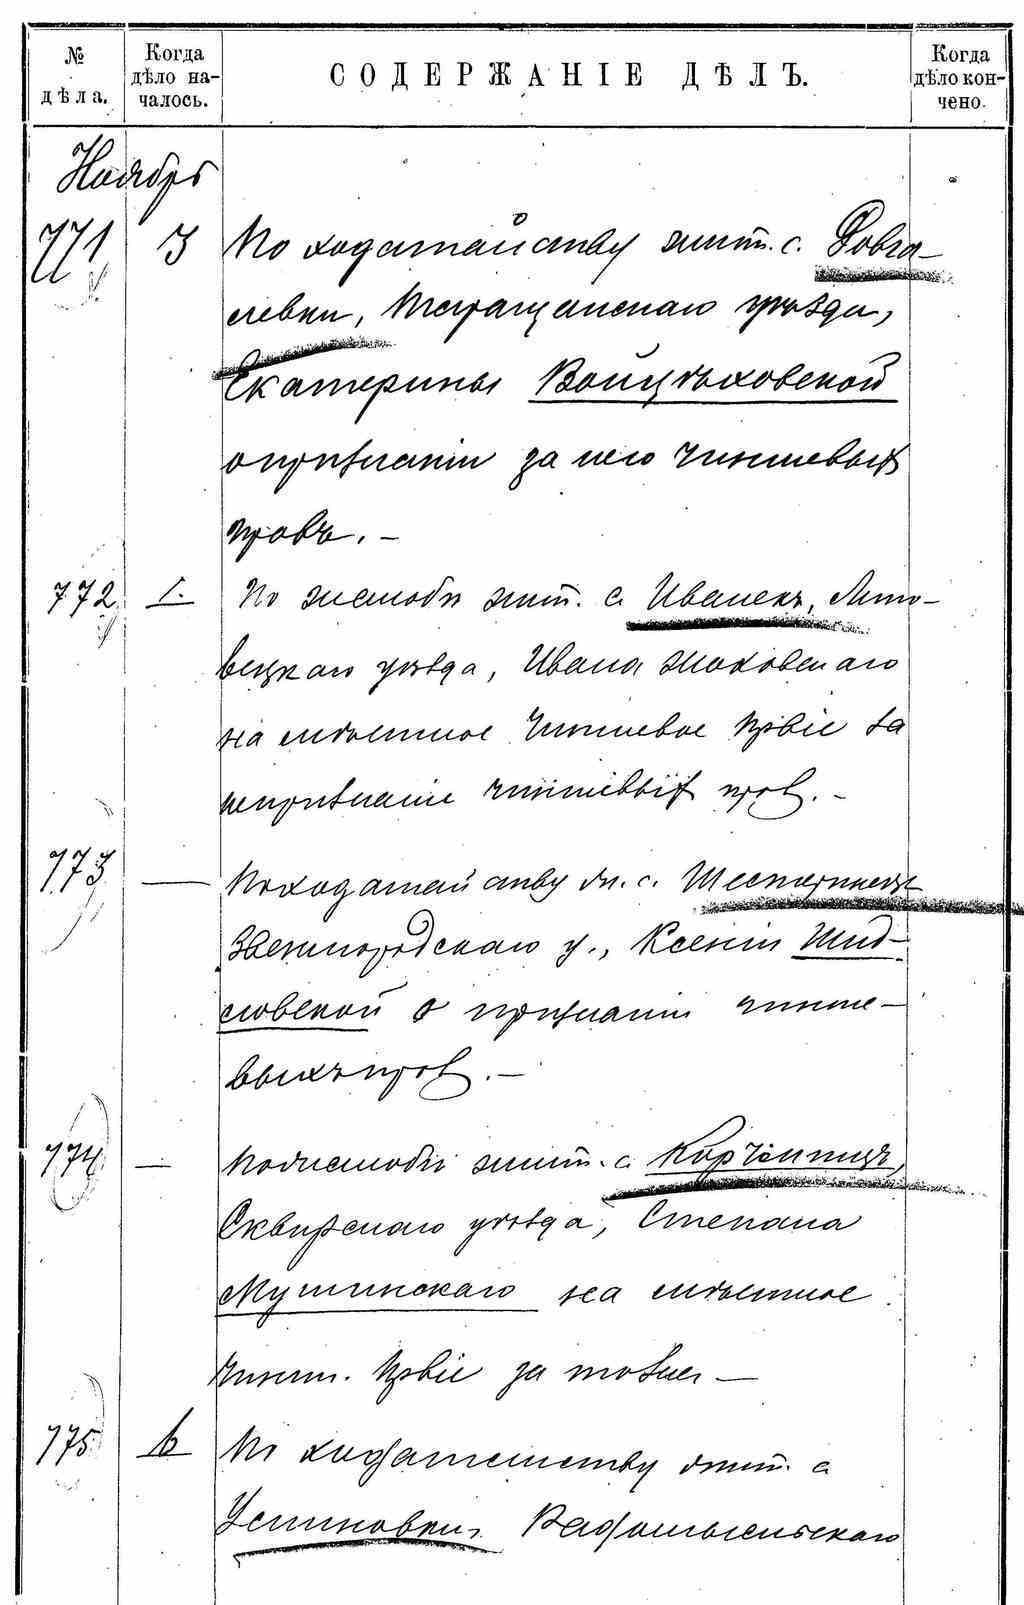 № дѣла.
Когда дѣло началось.
СОДЕРЖАНІЕ ДѢЛЪ.
Когда дѣло кончено.
Ноябрь
771 3 По ходатайству жит. с. Довга-
левки, Таращанскаго уѣзда,
Екатерины Войцѣховской
о признаніи за нею чиншевыхъ
правъ. —
772 1. По жалобѣ жит. с. Иванекъ, Липо-
вецкаго уѣзда, Ивана Жаховскаго
на мѣстное Чиншевое Пр̃віе за
непризнаніе чиншевыхъ прав. —
773 — По ходатайству жит. с. Шестеринецъ
Звенигородскаго у., Ксеніи Жид-
ловской о признаніи чинше-
выхъ прав. —
774 — По жалобѣ жит. с. Корчонницъ,
Сквирскаго уѣзда, Степана
Мушинскаго на мѣстное
Чинш. Пр̃віе за тоже —
775 6 По ходатайству жит. с
Устиновки, Радомысльскаго